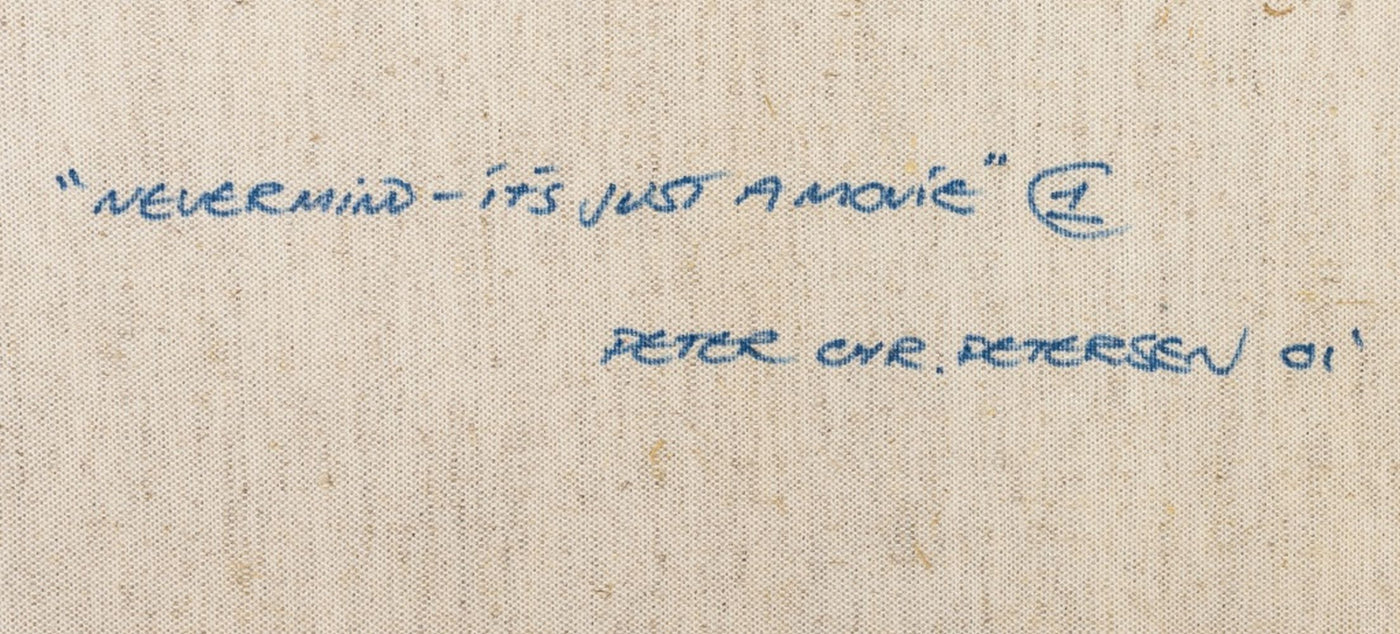 "NEVERMIND - IT'S JUST A MOVIE" 1
PETER CHR. PETERSEN 01'